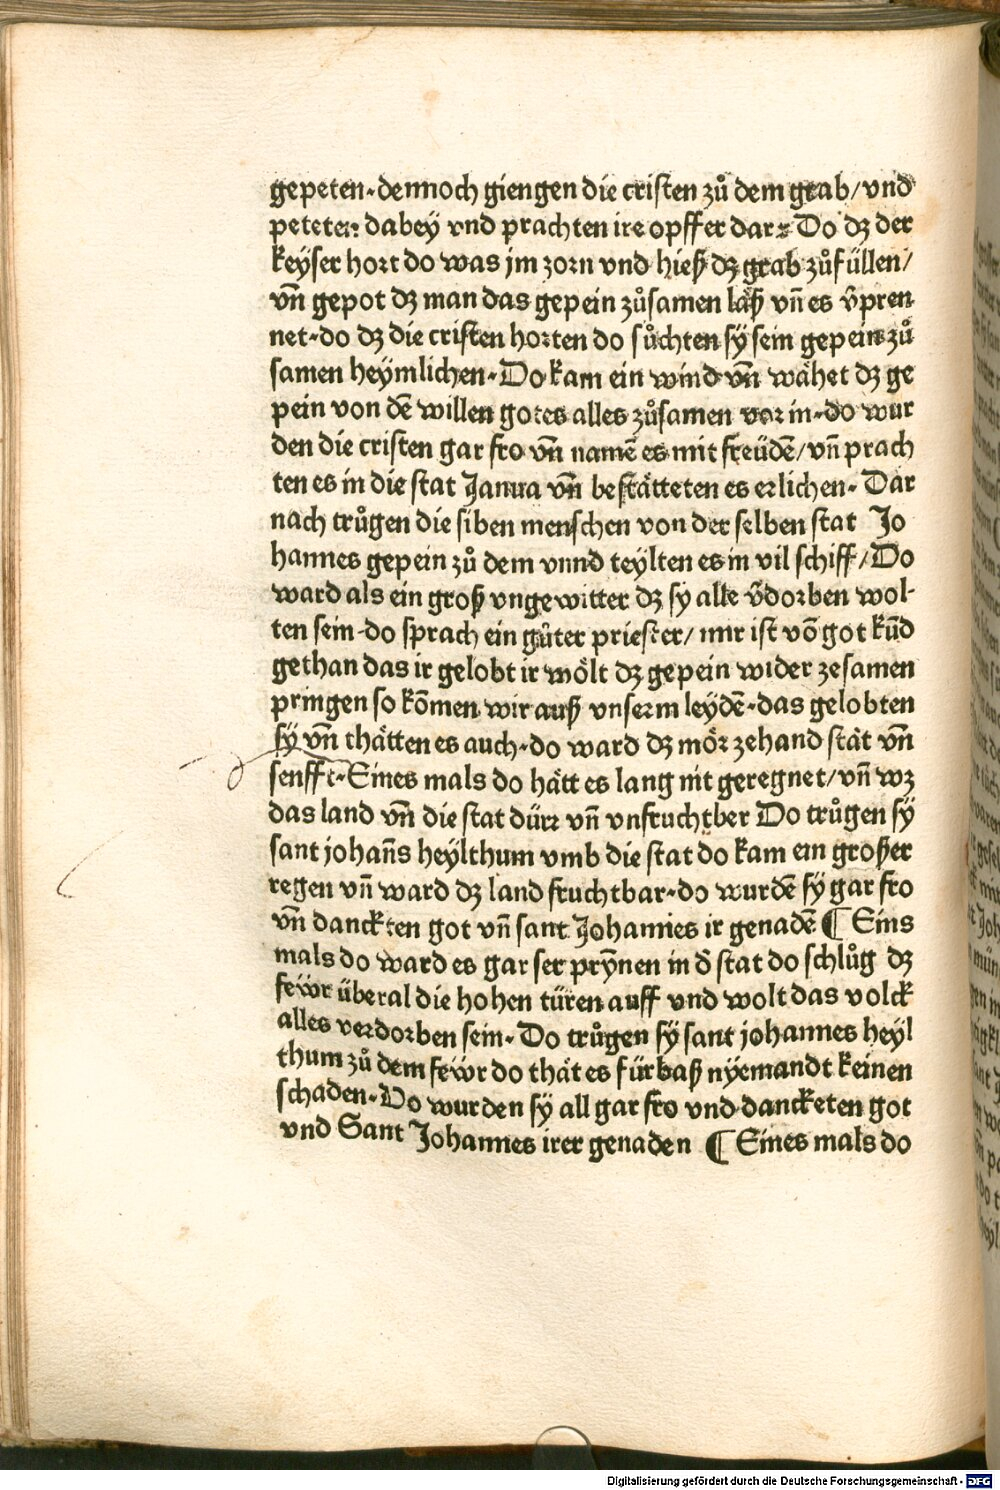 gepeten·dennoch giengen die cristen zů dem grab/vnd
peteten dabey vnd prachten ire opffer dar· Do dz der
keyser hort do was jm zorn vnd hieß dz grab zůfüllen/
vn̄ gepot dz man das gepein zůsamen läß vn̄ es v̄pren
net·do dz die cristen horten do sůchten sÿ sein gepein zů
samen heÿmlichen·Do kam ein wind vn̄ wähet dz ge
pein von dē willen gotes alles zůsamen vor in·do wur
den die cristen gar fro vn̄ namē es mit freüdē/vn̄ prach
ten es in die stat Janua vn̄ bestätteten es erlichen· Dar
nach trůgen die siben menschen von der selben stat Jo
hannes gepein zů dem vnnd teÿlten es in vil schiff/Do
ward als ein groß vngewitter dz sy alle v̄dorben wol-
ten sein·do sprach ein gůter priester/mir ist vō got kūd
gethan das ir gelobt ir wölt dz gepein wider zesamen
pringen so kōmen wir auß vnserm leÿdē·das gelobten
sÿ vn̄ thätten es auch·do ward dz mör zehand stät vn̄
senfft·Eines mals do hätt es lang nit geregnet/vn̄ wz
das land vn̄ die stat dürr vn̄ vnfruchtber Do trůgen sÿ
sant johan̄s heÿlthum vmb die stat do kam ein großer
regen vn̄ ward dz land fruchtbar·do wurdē sÿ gar fro
vn̄ danckten got vn̄ sant Johannes ir genadē ¶ Eins
mals do ward es gar ser prÿnen in d̄ stat do schlůg dz
feẅr überal die hohen türen auff vnd wolt das volck
alles verdorben sein· Do trůgen sÿ sant johannes heÿl
thum zů dem feẅr do thät es fürbaß nÿemandt keinen
schaden·Do wurden sÿ all gar fro vnd dancketen got
vnd Sant Johannes irer genaden ¶ Eines mals do
Digitalisierung gefördert durch die Deutsche Forschungsgemeinschaft - DFG